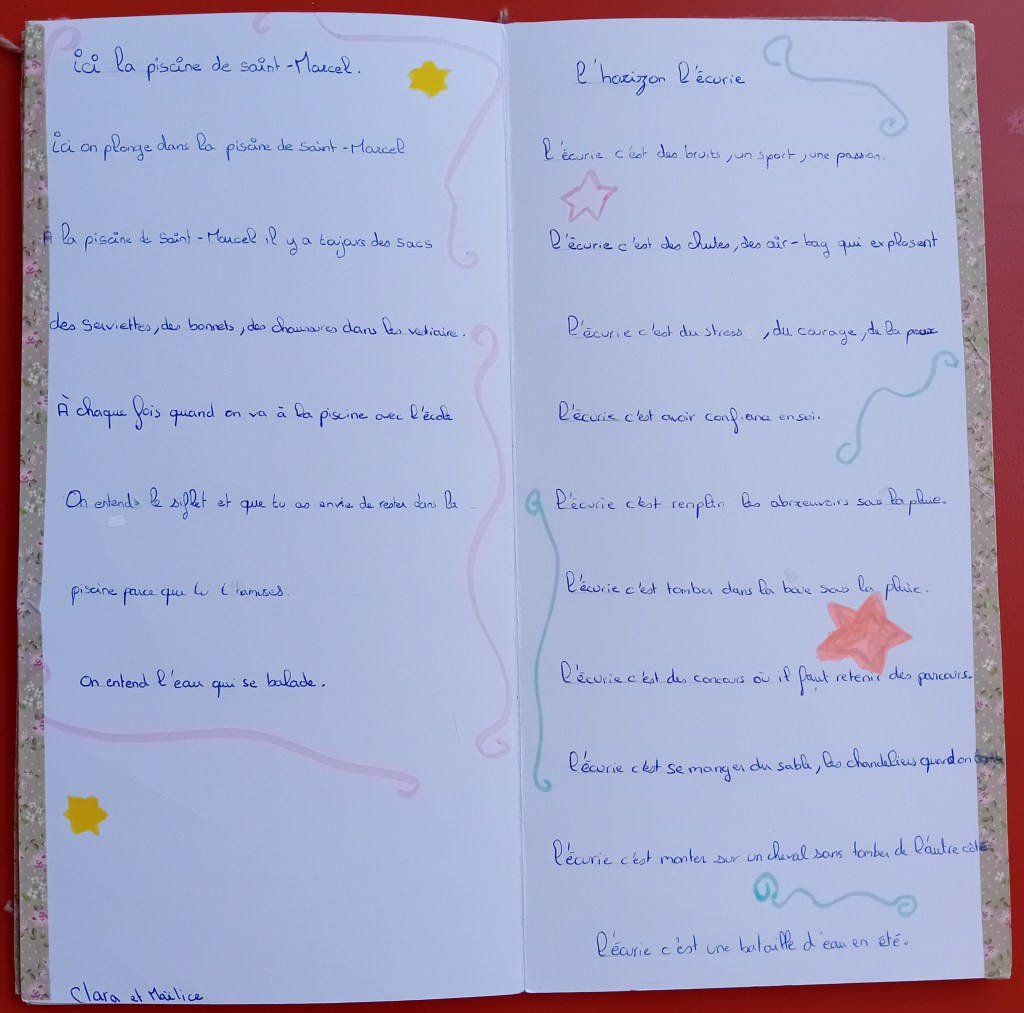 ici la piscine de saint-Marcel.
ici on plonge dans la piscine de saint-Marcel
A la piscine de saint-Marcel il y a toujours des sacs
des serviettes, des bonnets, des chaussures dans les vestiaire.
À chaque fois quand on va à la piscine avec l'école
On entends le sifflet et que tu as envie de rester dans la
piscine parce que tu t'amuses.
On entend l'eau qui se balade.
Clara et Maëlice
l'horizon l'écurie
l'écurie c'est des bruits, un sport, une passion.
l'écurie c'est des chutes, des air-bag qui explosent
l'écurie c'est du stress, du courage, de la peur
l'écurie c'est avoir confiance en soi.
l'écurie c'est remplir les abreuvoirs sous la pluie.
l'écurie c'est tomber dans la boue sous la pluie.
l'écurie c'est des concours où il faut retenir des parcours.
l'écurie c'est se manger du sable, les chandeliers quand on tombe
l'écurie c'est monter sur un cheval sans tomber de l'autre côté
l'écurie c'est une bataille d'eau en été.